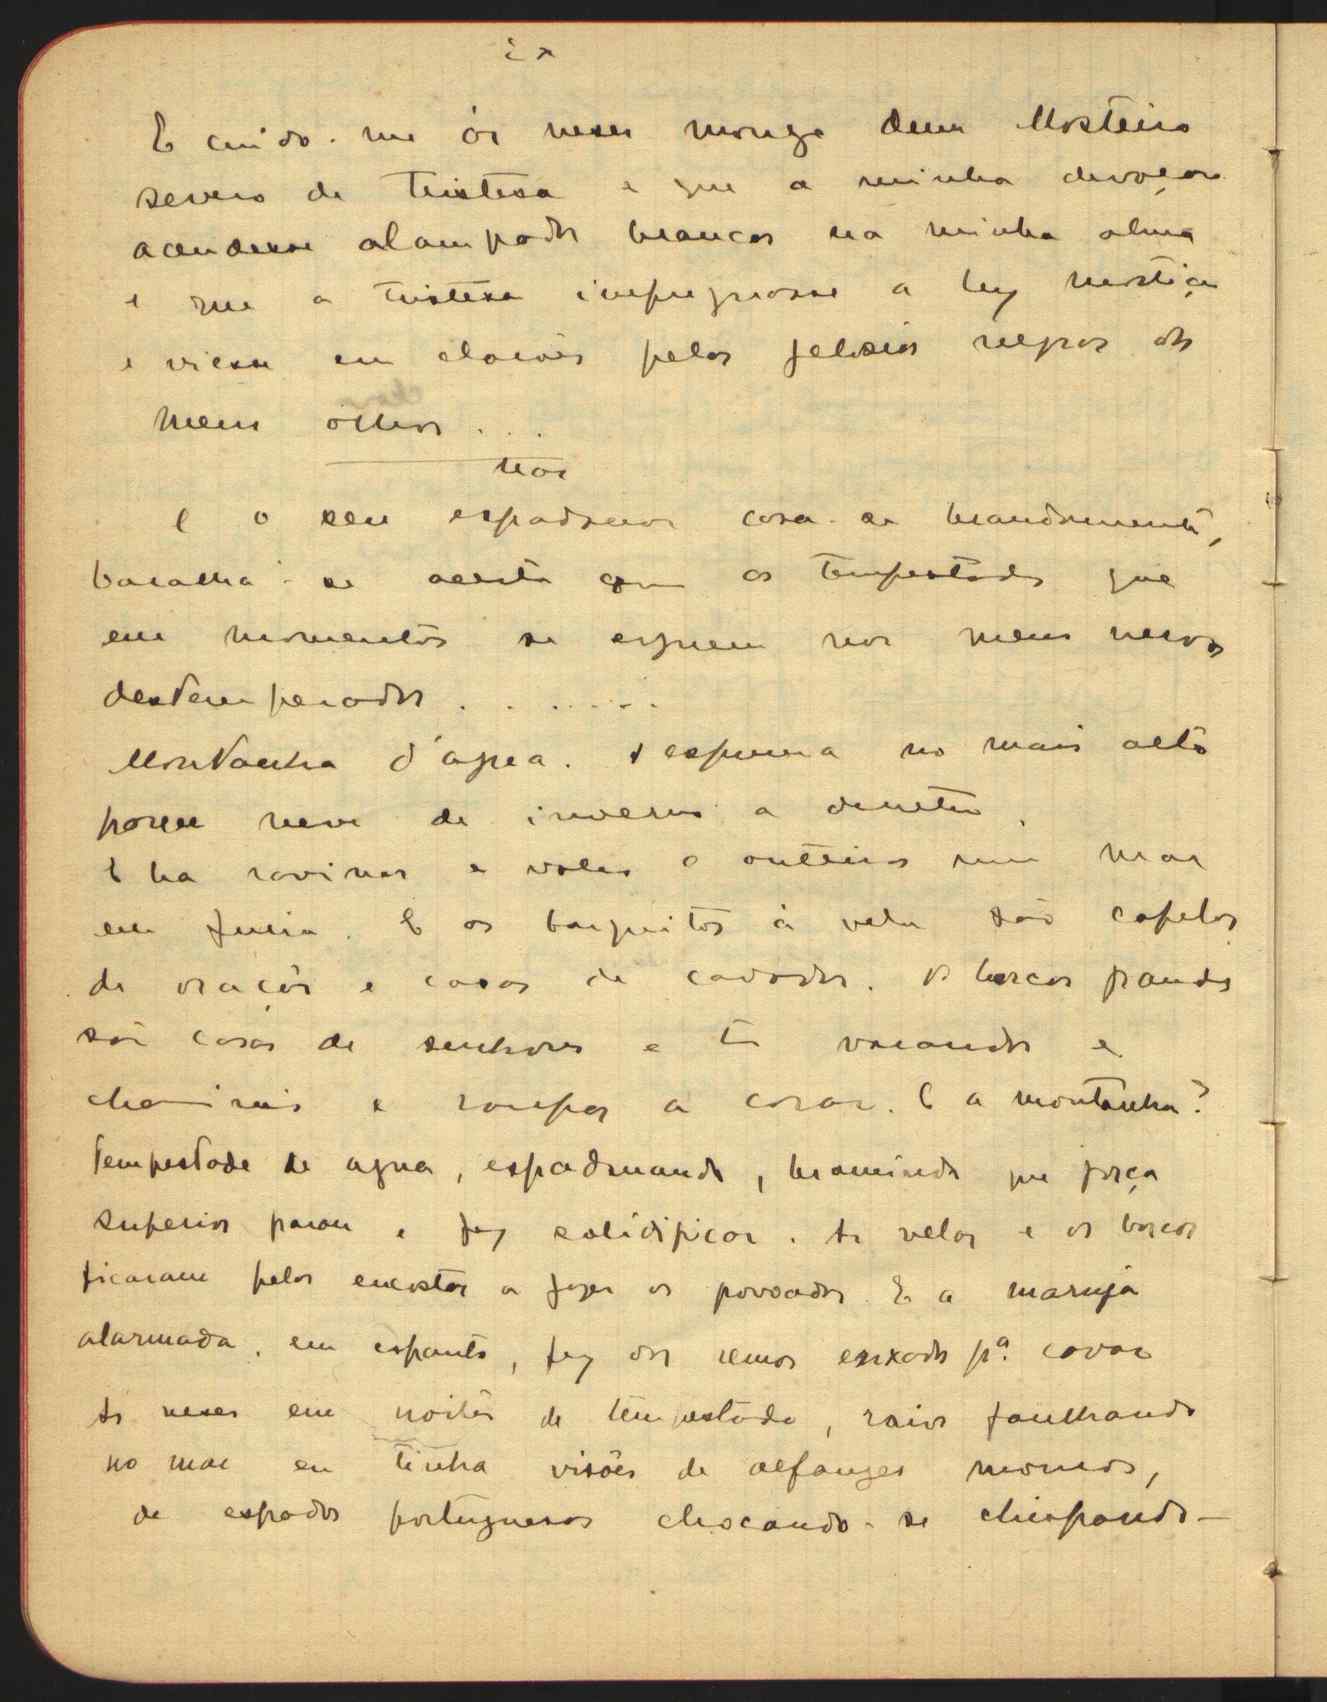 E cuido-me ás vezes monge dum Mosteiro
severo de tristesa e que a minha devoção
acendesse alampadas brancas na minha alma
e que a tristesa impregnasse a luz mortiça
e viesse em clarões pelas gelosias negras dos
meus olhos...
mar
E o seu espadanar casa-se brandamente,
baralha-se aceita com as tempestades que
em momentos se erguem nos meus nervos
destemperados.......
Montanha d'agua. A espuma no mais alto
parece neve de inverno a derreter.
E ha ravinas e vales e outeiros num mar
em furia. E os barquitos á vela são capelas
de orações e casas de cavador. Os barcos grandes
são casas de senhores e varandas e
chaminés e roupas a corar. E a montanha?
Tempestade de agua, espadanando, bramindo que força
superior parou e fez solidificar. As velas e os barcos
ficaram pelas encostas a fazer os povoados. E a maruja
alarmada, em espanto, fez dos remos enxadas pª. cavar
As vezes em noites de tempestade, raios faulhando
no mar eu tinha visões de alfanges mouros,
de espadas portuguesas chocando-se chispando-